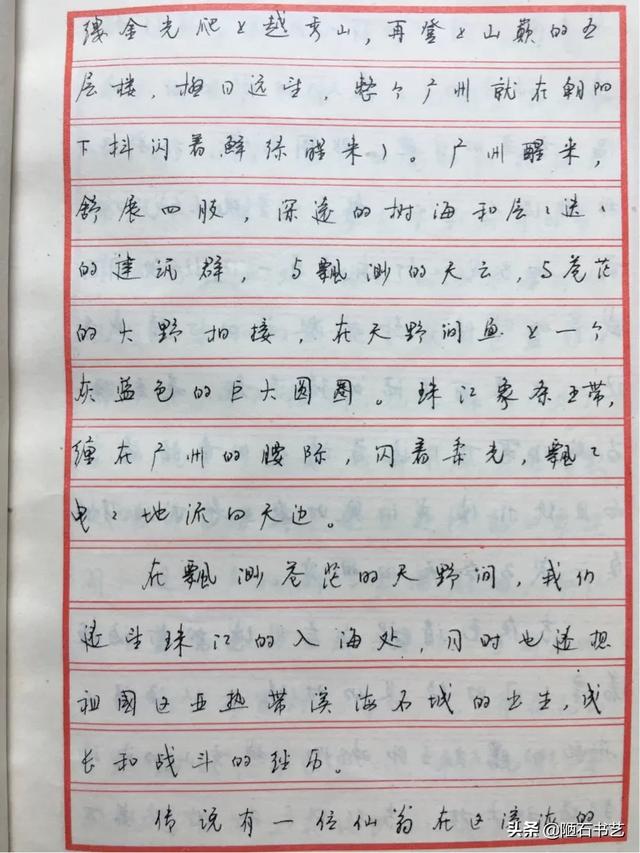 缕金光爬上越秀山，再登上山巅的五
层楼，极目远望，整个广州就在朝阳
下抖闪着鲜绿醒来)。广州醒来，
舒展四肢，深邃的树海和层:迭:
的建筑群，与飘渺的天云，与苍茫
的大野相接，在天野间画上一个
灰蓝色的巨大圆圈。珠江象条玉带，
缠在广州的腰际，闪着柔光，飘:
曳:地流向天边。
在飘渺苍茫的天野间，我们
遥望珠江的入海处，同时也遥想
祖国这亚热带滨海石城的出生，成
长和战斗的经历。
传说有一位仙翁在这滨海的
头条@陋石书艺